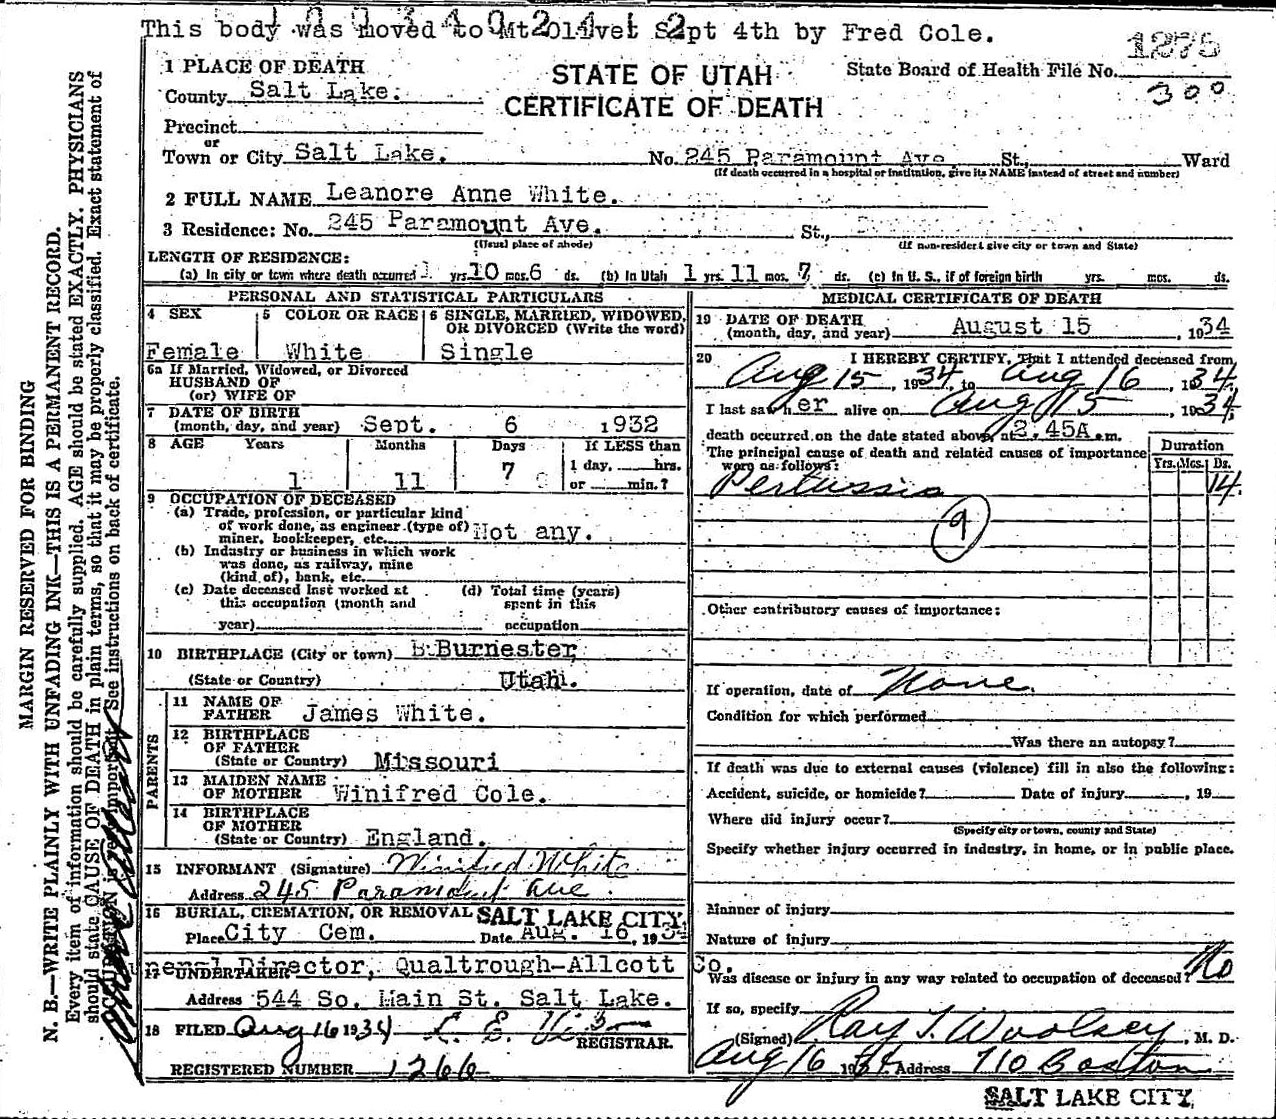 This body was moved to Mt Olivet Sept 4th by Fred Cole.
1275
1 PLACE OF DEATH
STATE OF UTAH
State Board of Health File No.
County Salt Lake.
CERTIFICATE OF DEATH
300
Precinct
or
Town or City Salt Lake. No. 245 Paramount Ave. St., Ward
(If death occurred in a hospital or institution, give its NAME instead of street and number)
2 FULL NAME Leanore Anne White.
3 Residence: No. 245 Paramount Ave. St.,
(Usual place of abode) (If non-resident give city or town and State)
LENGTH OF RESIDENCE:
(a) In city or town where death occurred 1 yrs. 10 mos. 6 ds. (b) In Utah 1 yrs. 11 mos. 7 ds. (c) In U. S., if of foreign birth yrs. mos. ds.
PERSONAL AND STATISTICAL PARTICULARS
4 SEX 5 COLOR OR RACE 6 SINGLE, MARRIED, WIDOWED,
OR DIVORCED (Write the word)
Female White Single
6a If Married, Widowed, or Divorced
HUSBAND OF
(or) WIFE OF
7 DATE OF BIRTH
(month, day, and year) Sept. 6 1932
8 AGE Years Months Days If LESS than
1 11 7 1 day, hrs.
or min.?
9 OCCUPATION OF DECEASED
(a) Trade, profession, or particular kind
of work done, as engineer (type of)
miner, bookkeeper, etc. Not any.
(b) Industry or business in which work
was done, as railway, mine
(kind of), bank, etc.
(c) Date deceased last worked at
this occupation (month and
year)
(d) Total time (years)
spent in this
occupation
10 BIRTHPLACE (City or town) Burnester
(State or Country) Utah.
PARENTS
11 NAME OF
FATHER James White.
12 BIRTHPLACE
OF FATHER
(State or Country) Missouri
13 MAIDEN NAME
OF MOTHER Winifred Cole.
14 BIRTHPLACE
OF MOTHER
(State or Country) England.
15 INFORMANT (Signature) Winifred White
Address 245 Paramount Ave
16 BURIAL, CREMATION, OR REMOVAL SALT LAKE CITY
Place City Cem. Date Aug. 16, 1934
17 UNDERTAKER Director, Qualtrough-Allcott Co.
Address 544 So. Main St. Salt Lake.
18 FILED Aug 16 1934
REGISTRAR.
REGISTERED NUMBER 1266
MEDICAL CERTIFICATE OF DEATH
19 DATE OF DEATH
(month, day, and year) August 15, 1934
20 I HEREBY CERTIFY, That I attended deceased from
Aug 15, 1934, to Aug 16, 1934.
I last saw her alive on Aug 15, 1934.
death occurred on the date stated above, at 2.45A.m.
The principal cause of death and related causes of importance
were as follows:
Duration
Yrs. Mos. Ds.
Pertussis 14
9
Other contributory causes of importance:
If operation, date of None.
Condition for which performed
Was there an autopsy?
If death was due to external causes (violence) fill in also the following:
Accident, suicide, or homicide? Date of injury , 19
Where did injury occur?
(Specify city or town, county and State)
Specify whether injury occurred in industry, in home, or in public place.
Manner of injury
Nature of injury
Was disease or injury in any way related to occupation of deceased? No
If so, specify
(Signed) Ray T. Woolsey, M. D.
Aug 16 1934 Address 710 Boston
SALT LAKE CITY
MARGIN RESERVED FOR BINDING
N. B.—WRITE PLAINLY WITH UNFADING INK—THIS IS A PERMANENT RECORD.
Every item of information should be carefully supplied. AGE should be stated EXACTLY. PHYSICIANS
should state CAUSE OF DEATH in plain terms, so that it may be properly classified. Exact statement of
OCCUPATION is very important. See instructions on back of certificate.